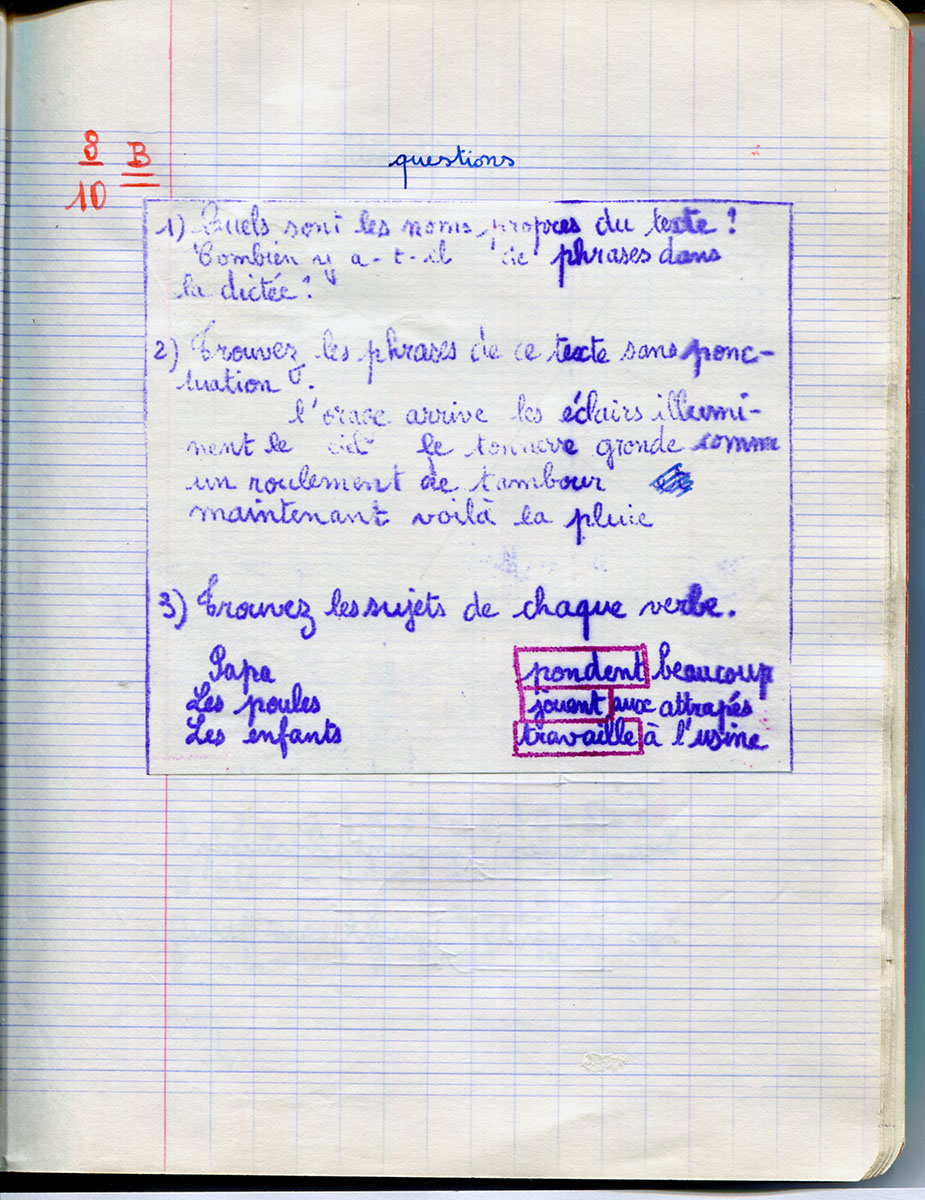 8
10
B
questions
1) Quels sont les noms propres du texte ?
Combien y a-t-il de phrases dans
la dictée ?
2) Trouvez les phrases de ce texte sans ponc-
tuation.
l'orage arrive les éclairs illumi-
nent le ciel le tonnerre gronde comme
un roulement de tambour
maintenant voilà la pluie
3) Trouvez les sujets de chaque verbe.
Papa pondent beaucoup
Les poules jouent aux attrapés
Les enfants travaille à l'usine